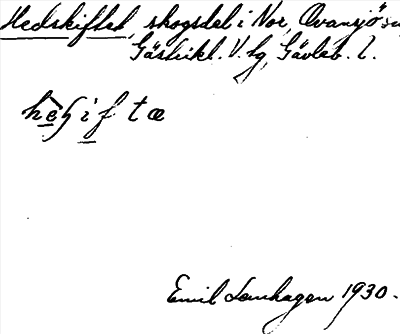 Hedskiftet, skogsdel i Nor, Ovansjö sn
Gästrikl. V. tg, Gävleb. l.
heʃiftæ
Emil Lenhagen 1930.